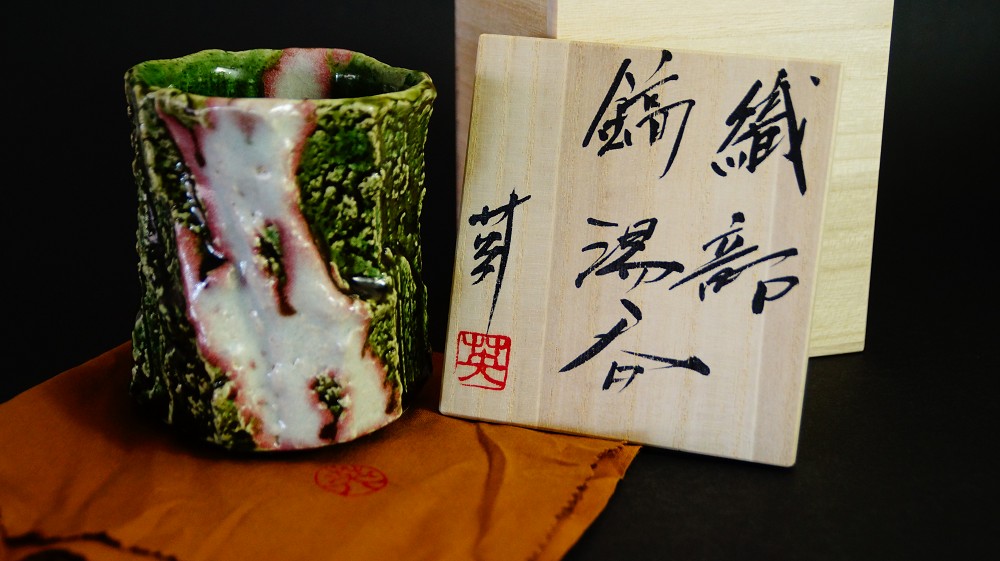 織部
鎬湯呑
英